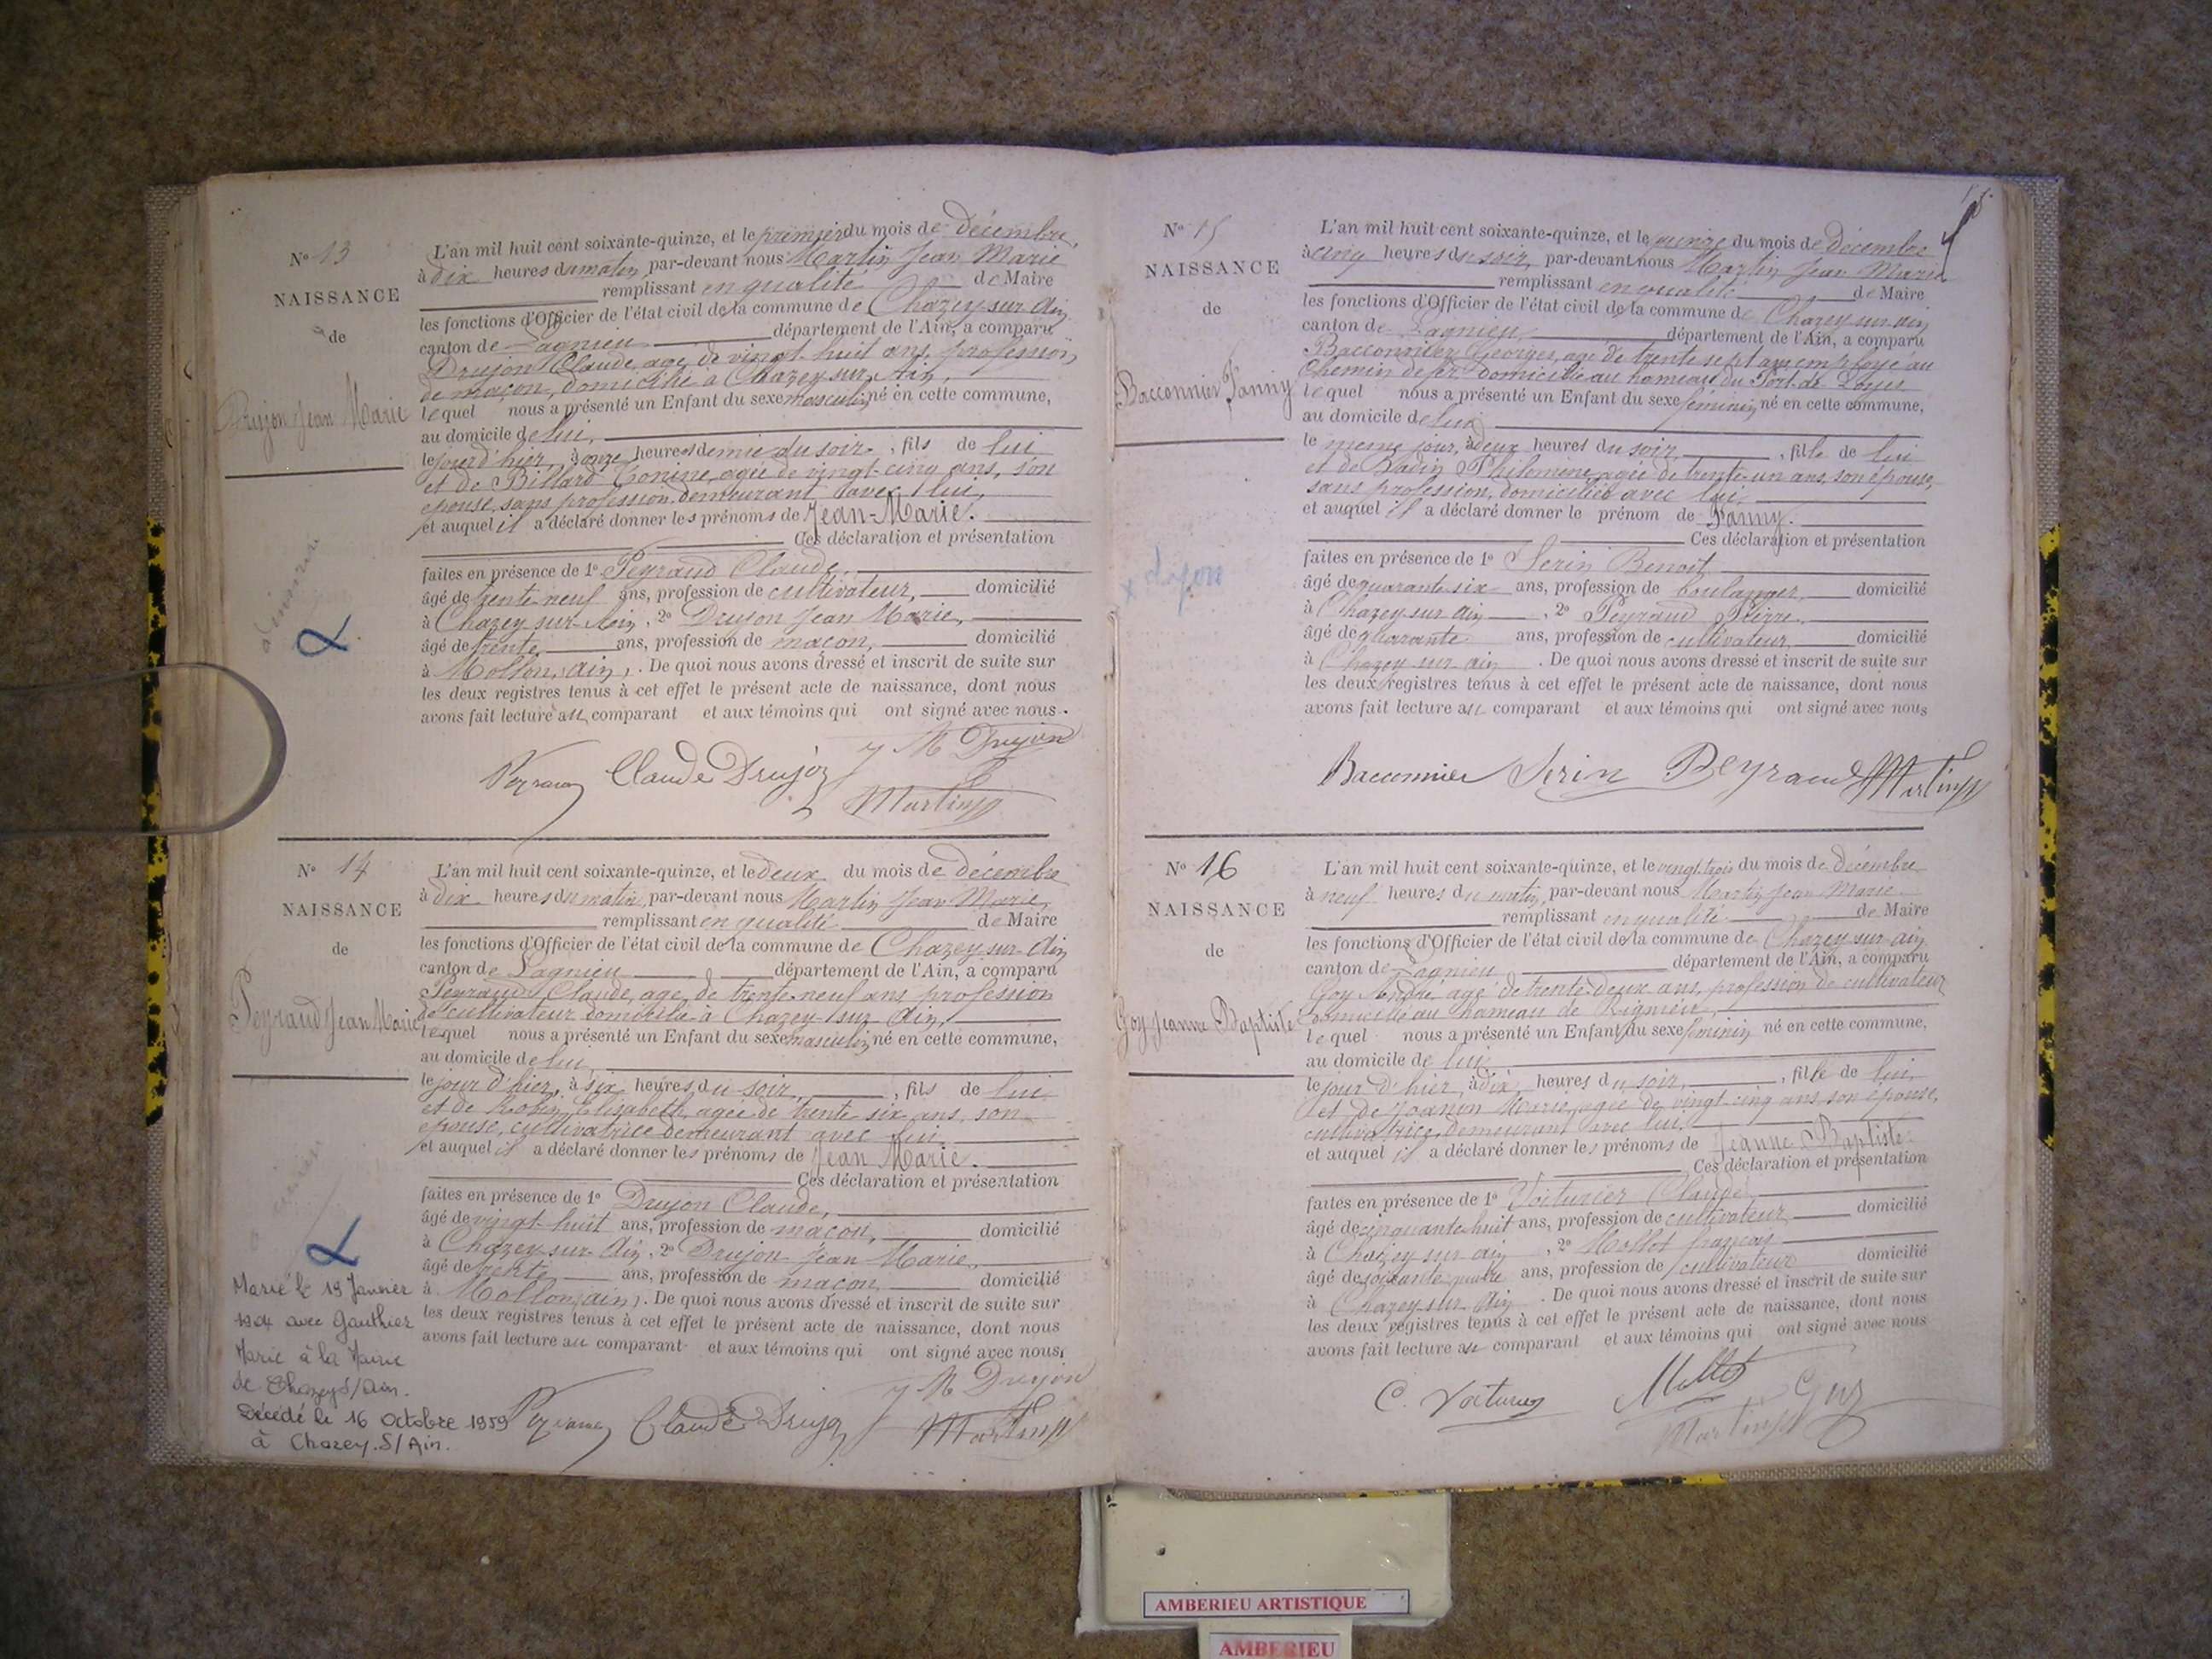 Nº 13
NAISSANCE
de
Drujon Jean Marie
L'an mil huit cent soixante-quinze, et le premier du mois de décembre,
à dix heures du matin, par-devant nous Martin Jean Marie
remplissant en qualité de Maire
les fonctions d'Officier de l'état civil de la commune de Chazey-sur-Ain
canton de Lagnieu département de l'Ain, a comparu
Drujon Claude, agé de vingt-huit ans, profession
de maçon, domicilié à Chazey sur Ain,
lequel nous a présenté un Enfant du sexe masculin né en cette commune,
au domicile de lui,
le jour d'hier, à onze heures demie du soir, fils de lui
et de Billard Tonine, agée de vingt-cinq ans, son
épouse, sans profession, demeurant avec lui,
et auquel il a déclaré donner les prénoms de Jean-Marie.
Ces déclaration et présentation
faites en présence de 1º Peyraud Claude,
âgé de trente-neuf ans, profession de cultivateur, domicilié
à Chazey-sur-Ain, 2º Drujon Jean Marie,
âgé de trente ans, profession de maçon, domicilié
à Mollon, ain, . De quoi nous avons dressé et inscrit de suite sur
les deux registres tenus à cet effet le présent acte de naissance, dont nous
avons fait lecture au comparant et aux témoins qui ont signé avec nous.
J M Drujon
Peyraud Claude Drujon
Martin
Nº 14
NAISSANCE
de
Peyraud Jean Marie
L'an mil huit cent soixante-quinze, et le deux du mois de décembre
à dix heures du matin, par-devant nous Martin Jean Marie,
remplissant en qualité de Maire
les fonctions d'Officier de l'état civil de la commune de Chazey-sur-Ain
canton de Lagnieu département de l'Ain, a comparu
Peyraud Claude, age de trente-neuf ans profession
de cultivateur domicilié à Chazey-sur-Ain,
lequel nous a présenté un Enfant du sexe masculin né en cette commune,
au domicile de lui,
le jour d'hier, à six heures du soir, , fils de lui
et de Robin Elisabeth, agée de trente six ans, son
épouse, cultivatrice demeurant avec lui.
et auquel il a déclaré donner les prénoms de Jean Marie.
Ces déclaration et présentation
faites en présence de 1º Drujon Claude,
âgé de vingt-huit ans, profession de maçon, domicilié
à Chazey-sur-Ain, 2º Drujon Jean Marie,
âgé de trente ans, profession de maçon, domicilié
à Mollon, ain, . De quoi nous avons dressé et inscrit de suite sur
les deux registres tenus à cet effet le présent acte de naissance, dont nous
avons fait lecture au comparant et aux témoins qui ont signé avec nous,
Marié le 19 Janvier
1904 avec Gauthier
Marie à la Mairie
de Chazey S/Ain.
Décédé le 16 Octobre 1959
à Chazey.S/Ain.
J M Drujon
Peyraud Claude Drujon
Martin
Nº 15
NAISSANCE
de
Bacconnier Fanny
x dijon
L'an mil huit cent soixante-quinze, et le quinze du mois de décembre
à cinq heures du soir, par-devant nous Martin Jean Marie
remplissant en qualité de Maire
les fonctions d'Officier de l'état civil de la commune de Chazey sur ain
canton de Lagnieu département de l'Ain, a comparu
Bacconnier Georges, agé de trente sept ans employé au
Chemin de fer domicilié au hameau du Port de Loyes
lequel nous a présenté un Enfant du sexe féminin né en cette commune,
au domicile de lui
le meme jour, à deux heures du soir, , fille de lui
et de Badin Philomene, agée de trente-un ans, son épouse,
sans profession, domiciliée avec lui,
et auquel il a déclaré donner le prénom de Fanny.
Ces déclaration et présentation
faites en présence de 1º Serin Benoit
âgé de quarante six ans, profession de boulanger, domicilié
à Chazey sur ain , 2º Peyraud Pierre,
âgé de quarante ans, profession de cultivateur, domicilié
à Chazey sur ain . De quoi nous avons dressé et inscrit de suite sur
les deux registres tenus à cet effet le présent acte de naissance, dont nous
avons fait lecture au comparant et aux témoins qui ont signé avec nous
Bacconnier Serin Peyraud Martin
Nº 16
NAISSANCE
de
Goy Jeanne Baptiste
L'an mil huit cent soixante-quinze, et le vingt-trois du mois de décembre
à neuf heures du matin, par-devant nous Martin Jean Marie
remplissant en qualité de Maire
les fonctions d'Officier de l'état civil de la commune de Chazey sur ain
canton de Lagnieu département de l'Ain, a comparu
Goy André agé de trente-deux ans, profession de cultivateur
domicilié au hameau de Rignieu,
lequel nous a présenté un Enfant du sexe féminin né en cette commune,
au domicile de lui
le jour d'hier, à dix heures du soir, , fille de lui
et de Joannon Marie, agée de vingt cinq ans son épouse,
cultivatrice, demeurant avec lui,
et auquel il a déclaré donner les prénoms de Jeanne Baptiste
Ces déclaration et présentation
faites en présence de 1º Voiturier Claude
âgé de cinquante huit ans, profession de cultivateur domicilié
à Chazey sur ain , 2º Mollet françois
âgé de soixante quatre ans, profession de cultivateur domicilié
à Chazey sur Ain . De quoi nous avons dressé et inscrit de suite sur
les deux registres tenus à cet effet le présent acte de naissance, dont nous
avons fait lecture au comparant et aux témoins qui ont signé avec nous
C. Voiturier Mollet Goy
Martin
AMBERIEU ARTISTIQUE
AMBERIEU